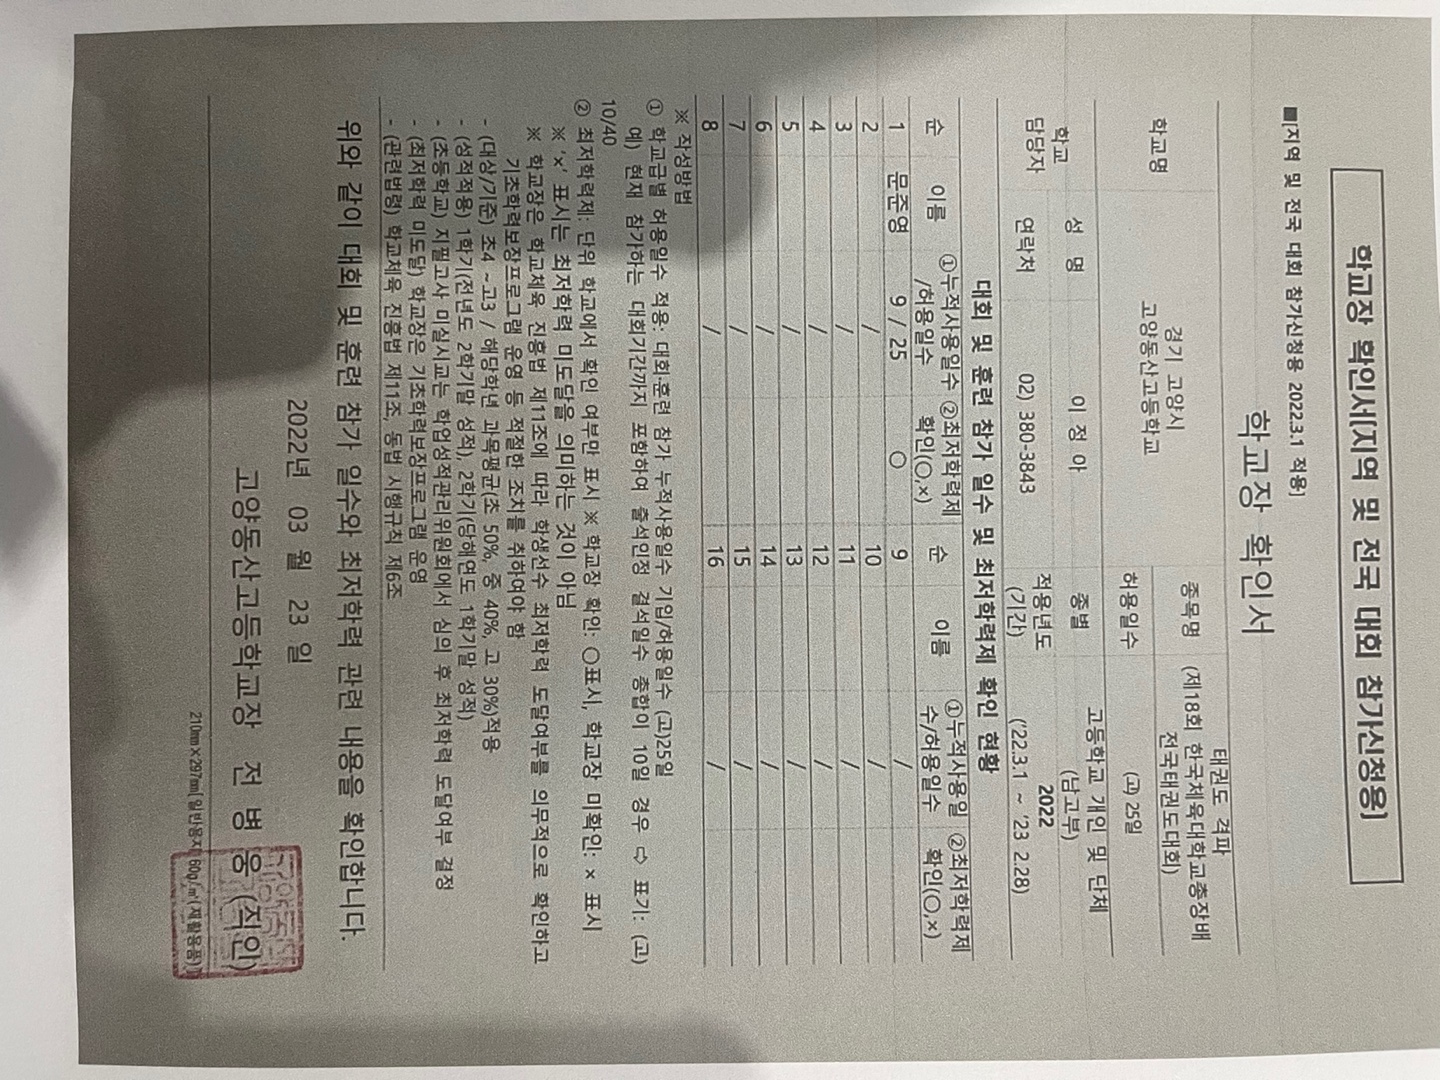 학교장 확인서[지역 및 전국 대회 참가신청용]
■[지역 및 전국 대회 참가신청용 2022.3.1 적용]
학교장 확인서
학교명
경기 고양시
고양동산고등학교
종목명
태권도 격파
(제18회 한국체육대학교총장배
전국태권도대회)
허용일수
(고) 25일
학교
담당자
성 명
이 정 아
종별
고등학교 개인 및 단체
(남고부)
연락처
02) 380-3843
적용년도
(기간)
2022
('22.3.1 ~ '23 2.28)
대회 및 훈련 참가 일수 및 최저학력제 확인 현황
순 이름 ①누적사용일수
/허용일수 ②최저학력제
확인(○,×) 순 이름 ①누적사용일
수/허용일수 ②최저학력제
확인(○,×)
1 문준영 9 / 25 ○ 9 /
2 / 10 /
3 / 11 /
4 / 12 /
5 / 13 /
6 / 14 /
7 / 15 /
8 / 16 /
※ 작성방법
① 학교급별 허용일수 적용: 대회·훈련 참가 누적사용일수 기입/허용일수 (고)25일
예) 현재 참가하는 대회기간까지 포함하여 출석인정 결석일수 총합이 10일 경우 ⇨ 표기: (고)
10/40
② 최저학력제: 단위 학교에서 확인 여부만 표시 ※ 학교장 확인: ○표시, 학교장 미확인: × 표시
※ ‘×’ 표시는 최저학력 미도달을 의미하는 것이 아님
※ 학교장은 학교체육 진흥법 제11조에 따라 학생선수 최저학력 도달여부를 의무적으로 확인하고
기초학력보장프로그램 운영 등 적절한 조치를 취하여야 함
- (대상/기준) 초4 ~고3 / 해당학년 과목평균(초 50%, 중 40%, 고 30%)적용
- (성적적용) 1학기(전년도 2학기말 성적), 2학기(당해연도 1학기말 성적)
- (초등학교) 지필고사 미실시교는 학업성적관리위원회에서 심의 후 최저학력 도달여부 결정
- (최저학력 미도달) 학교장은 기초학력보장프로그램 운영
- (관련법령) 학교체육 진흥법 제11조, 동법 시행규칙 제6조
위와 같이 대회 및 훈련 참가 일수와 최저학력 관련 내용을 확인합니다.
2022년 03 월 23 일
고양동산고등학교장 전 병 웅 (직인)
210㎜×297㎜[일반용지 60g/㎡(재활용품)]